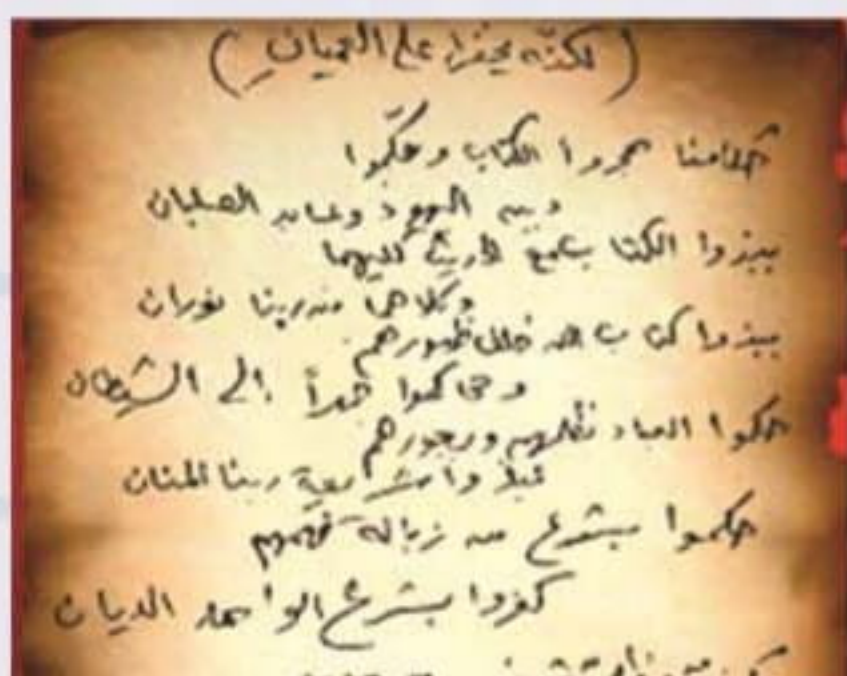 (لكنه يخفى على العميان)
حكامنا هجروا الكتاب وحكموا
دين اليهود وعابد الصلبان
نبذوا الكتاب مع الحديث كليهما
وكلاهما من ربنا نوران
نبذوا كتاب الله خلف ظهورهم
وتحاكموا جهراً إلى الشيطان
حكموا العباد بظلمهم وبجورهم
نبذوا شريعة ربنا المنان
حكموا بشرع من زبالة فهمهم
كفروا بشرع الواحد الديان